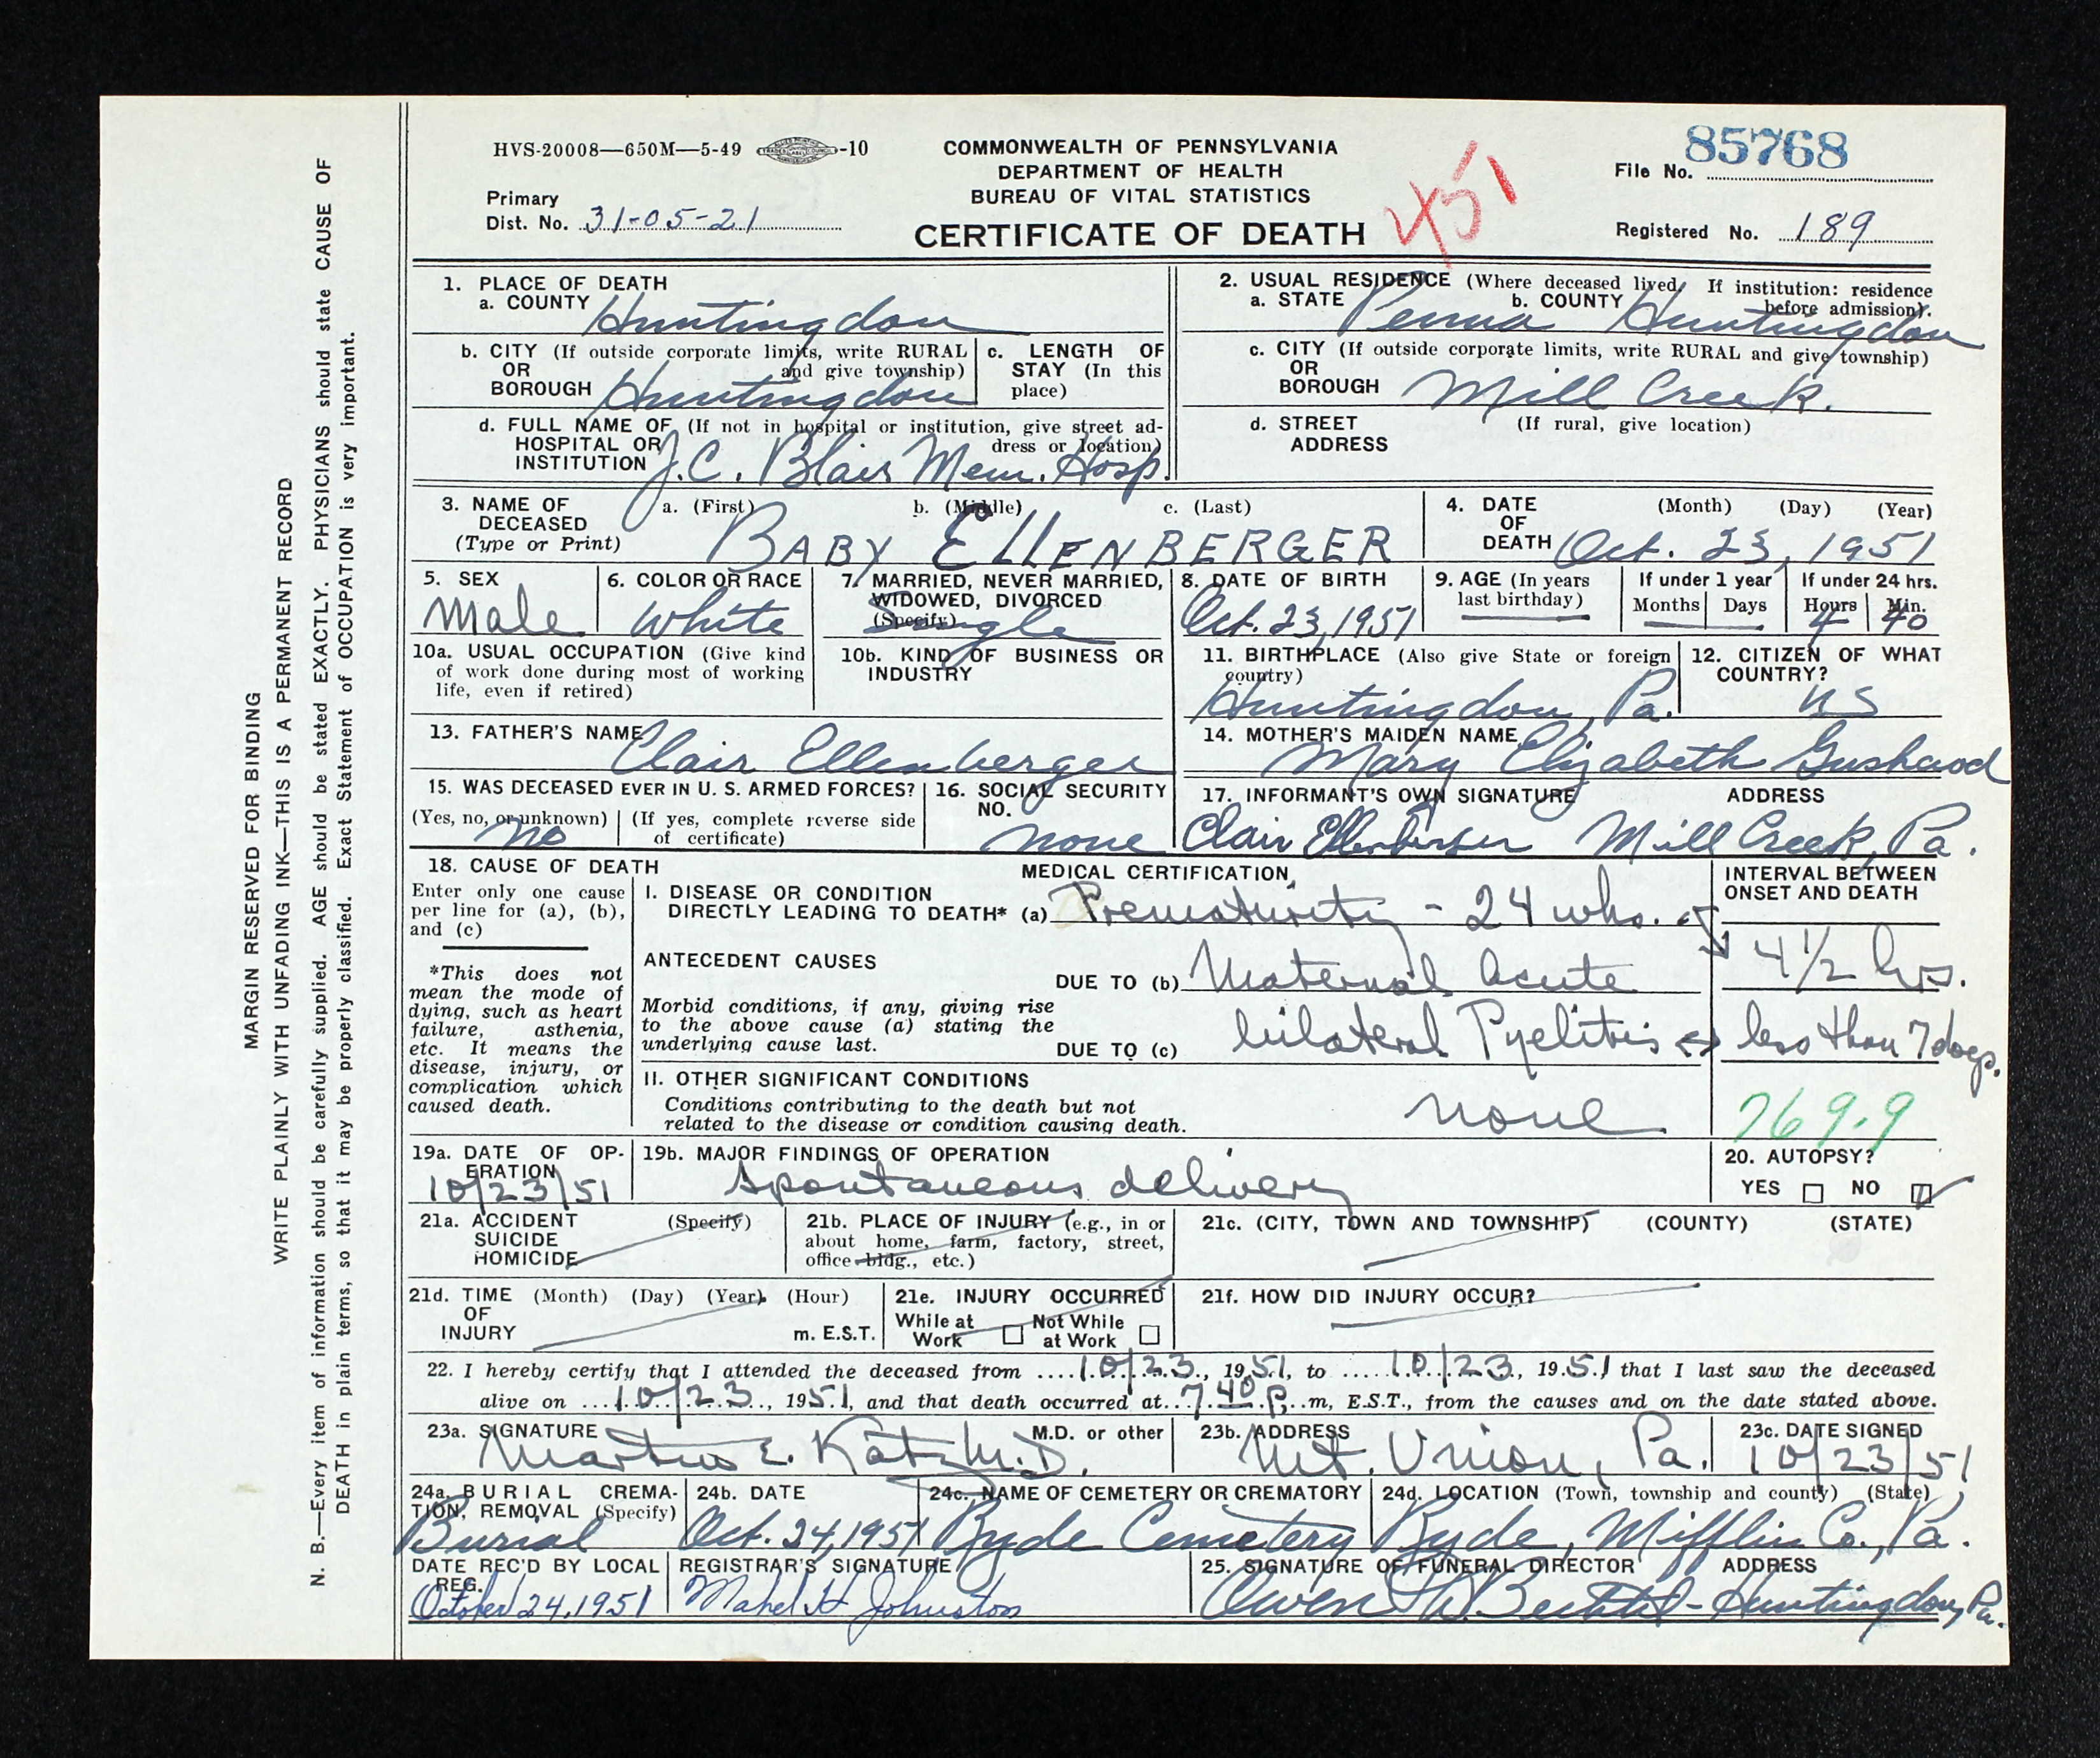 HVS-20008—650M—5-49 -10
COMMONWEALTH OF PENNSYLVANIA
DEPARTMENT OF HEALTH
BUREAU OF VITAL STATISTICS
CERTIFICATE OF DEATH
451
85768
File No.
Primary
Dist. No. 31-05-21
Registered No. 189
MARGIN RESERVED FOR BINDING
WRITE PLAINLY WITH UNFADING INK—THIS IS A PERMANENT RECORD
N. B.—Every item of information should be carefully supplied. AGE should be stated EXACTLY. PHYSICIANS should state CAUSE OF
DEATH in plain terms, so that it may be properly classified. Exact Statement of OCCUPATION is very important.
1. PLACE OF DEATH
a. COUNTY Huntingdon
b. CITY (If outside corporate limits, write RURAL
OR and give township)
BOROUGH Huntingdon
c. LENGTH OF
STAY (In this
place)
d. FULL NAME OF (If not in hospital or institution, give street ad-
HOSPITAL OR dress or location)
INSTITUTION J.C. Blair Mem. Hosp.
2. USUAL RESIDENCE (Where deceased lived. If institution: residence
before admission).
a. STATE Penna b. COUNTY Huntingdon
c. CITY (If outside corporate limits, write RURAL and give township)
OR
BOROUGH Mill Creek.
d. STREET (If rural, give location)
ADDRESS
3. NAME OF a. (First) b. (Middle) c. (Last)
DECEASED
(Type or Print) BABY ELLENBERGER
4. DATE (Month) (Day) (Year)
OF
DEATH Oct. 23, 1951
5. SEX
Male
6. COLOR OR RACE
White
7. MARRIED, NEVER MARRIED,
WIDOWED, DIVORCED
(Specify)
Single
8. DATE OF BIRTH
Oct. 23, 1951
9. AGE (In years
last birthday)
If under 1 year
Months Days
If under 24 hrs.
Hours Min.
4 40
10a. USUAL OCCUPATION (Give kind
of work done during most of working
life, even if retired)
10b. KIND OF BUSINESS OR
INDUSTRY
11. BIRTHPLACE (Also give State or foreign
country)
Huntingdon, Pa.
12. CITIZEN OF WHAT
COUNTRY?
US
13. FATHER'S NAME
Clair Ellenberger
14. MOTHER'S MAIDEN NAME
Mary Elizabeth
15. WAS DECEASED EVER IN U. S. ARMED FORCES?
(Yes, no, or unknown) (If yes, complete reverse side
of certificate)
no
16. SOCIAL SECURITY
NO.
none
17. INFORMANT'S OWN SIGNATURE ADDRESS
Clair Ellenberger Mill Creek, Pa.
18. CAUSE OF DEATH
Enter only one cause
per line for (a), (b),
and (c)
*This does not
mean the mode of
dying, such as heart
failure, asthenia,
etc. It means the
disease, injury, or
complication which
caused death.
MEDICAL CERTIFICATION
I. DISEASE OR CONDITION
DIRECTLY LEADING TO DEATH* (a) Prematurity - 24 wks.
ANTECEDENT CAUSES
DUE TO (b) Maternal acute
Morbid conditions, if any, giving rise
to the above cause (a) stating the
underlying cause last.
DUE TO (c) bilateral Pyelitis
II. OTHER SIGNIFICANT CONDITIONS
Conditions contributing to the death but not
related to the disease or condition causing death.
none
INTERVAL BETWEEN
ONSET AND DEATH
4 1/2 hrs.
less than 7 days.
769.9
19a. DATE OF OP-
ERATION
10/23/51
19b. MAJOR FINDINGS OF OPERATION
Spontaneous delivery
20. AUTOPSY?
YES NO
21a. ACCIDENT (Specify)
SUICIDE
HOMICIDE
21b. PLACE OF INJURY (e.g., in or
about home, farm, factory, street,
office bldg., etc.)
21c. (CITY, TOWN AND TOWNSHIP) (COUNTY) (STATE)
21d. TIME (Month) (Day) (Year) (Hour)
OF
INJURY m. E.S.T.
21e. INJURY OCCURRED
While at Not While
Work at Work
21f. HOW DID INJURY OCCUR?
22. I hereby certify that I attended the deceased from 10/23, 1951, to 10/23, 1951 that I last saw the deceased
alive on 10/23, 1951, and that death occurred at 7:40 P. m, E.S.T., from the causes and on the date stated above.
23a. SIGNATURE M.D. or other
E. Katz M.D.
23b. ADDRESS
Mt. Union, Pa.
23c. DATE SIGNED
10/23/51
24a. BURIAL CREMA-
TION, REMOVAL (Specify)
Burial
24b. DATE
Oct. 24, 1951
24c. NAME OF CEMETERY OR CREMATORY
Ryde Cemetery
24d. LOCATION (Town, township and county) (State)
Ryde, Mifflin Co., Pa.
DATE REC'D BY LOCAL
REG.
October 24, 1951
REGISTRAR'S SIGNATURE
Mabel H Johnston
25. SIGNATURE OF FUNERAL DIRECTOR ADDRESS
Owen - Huntingdon, Pa.